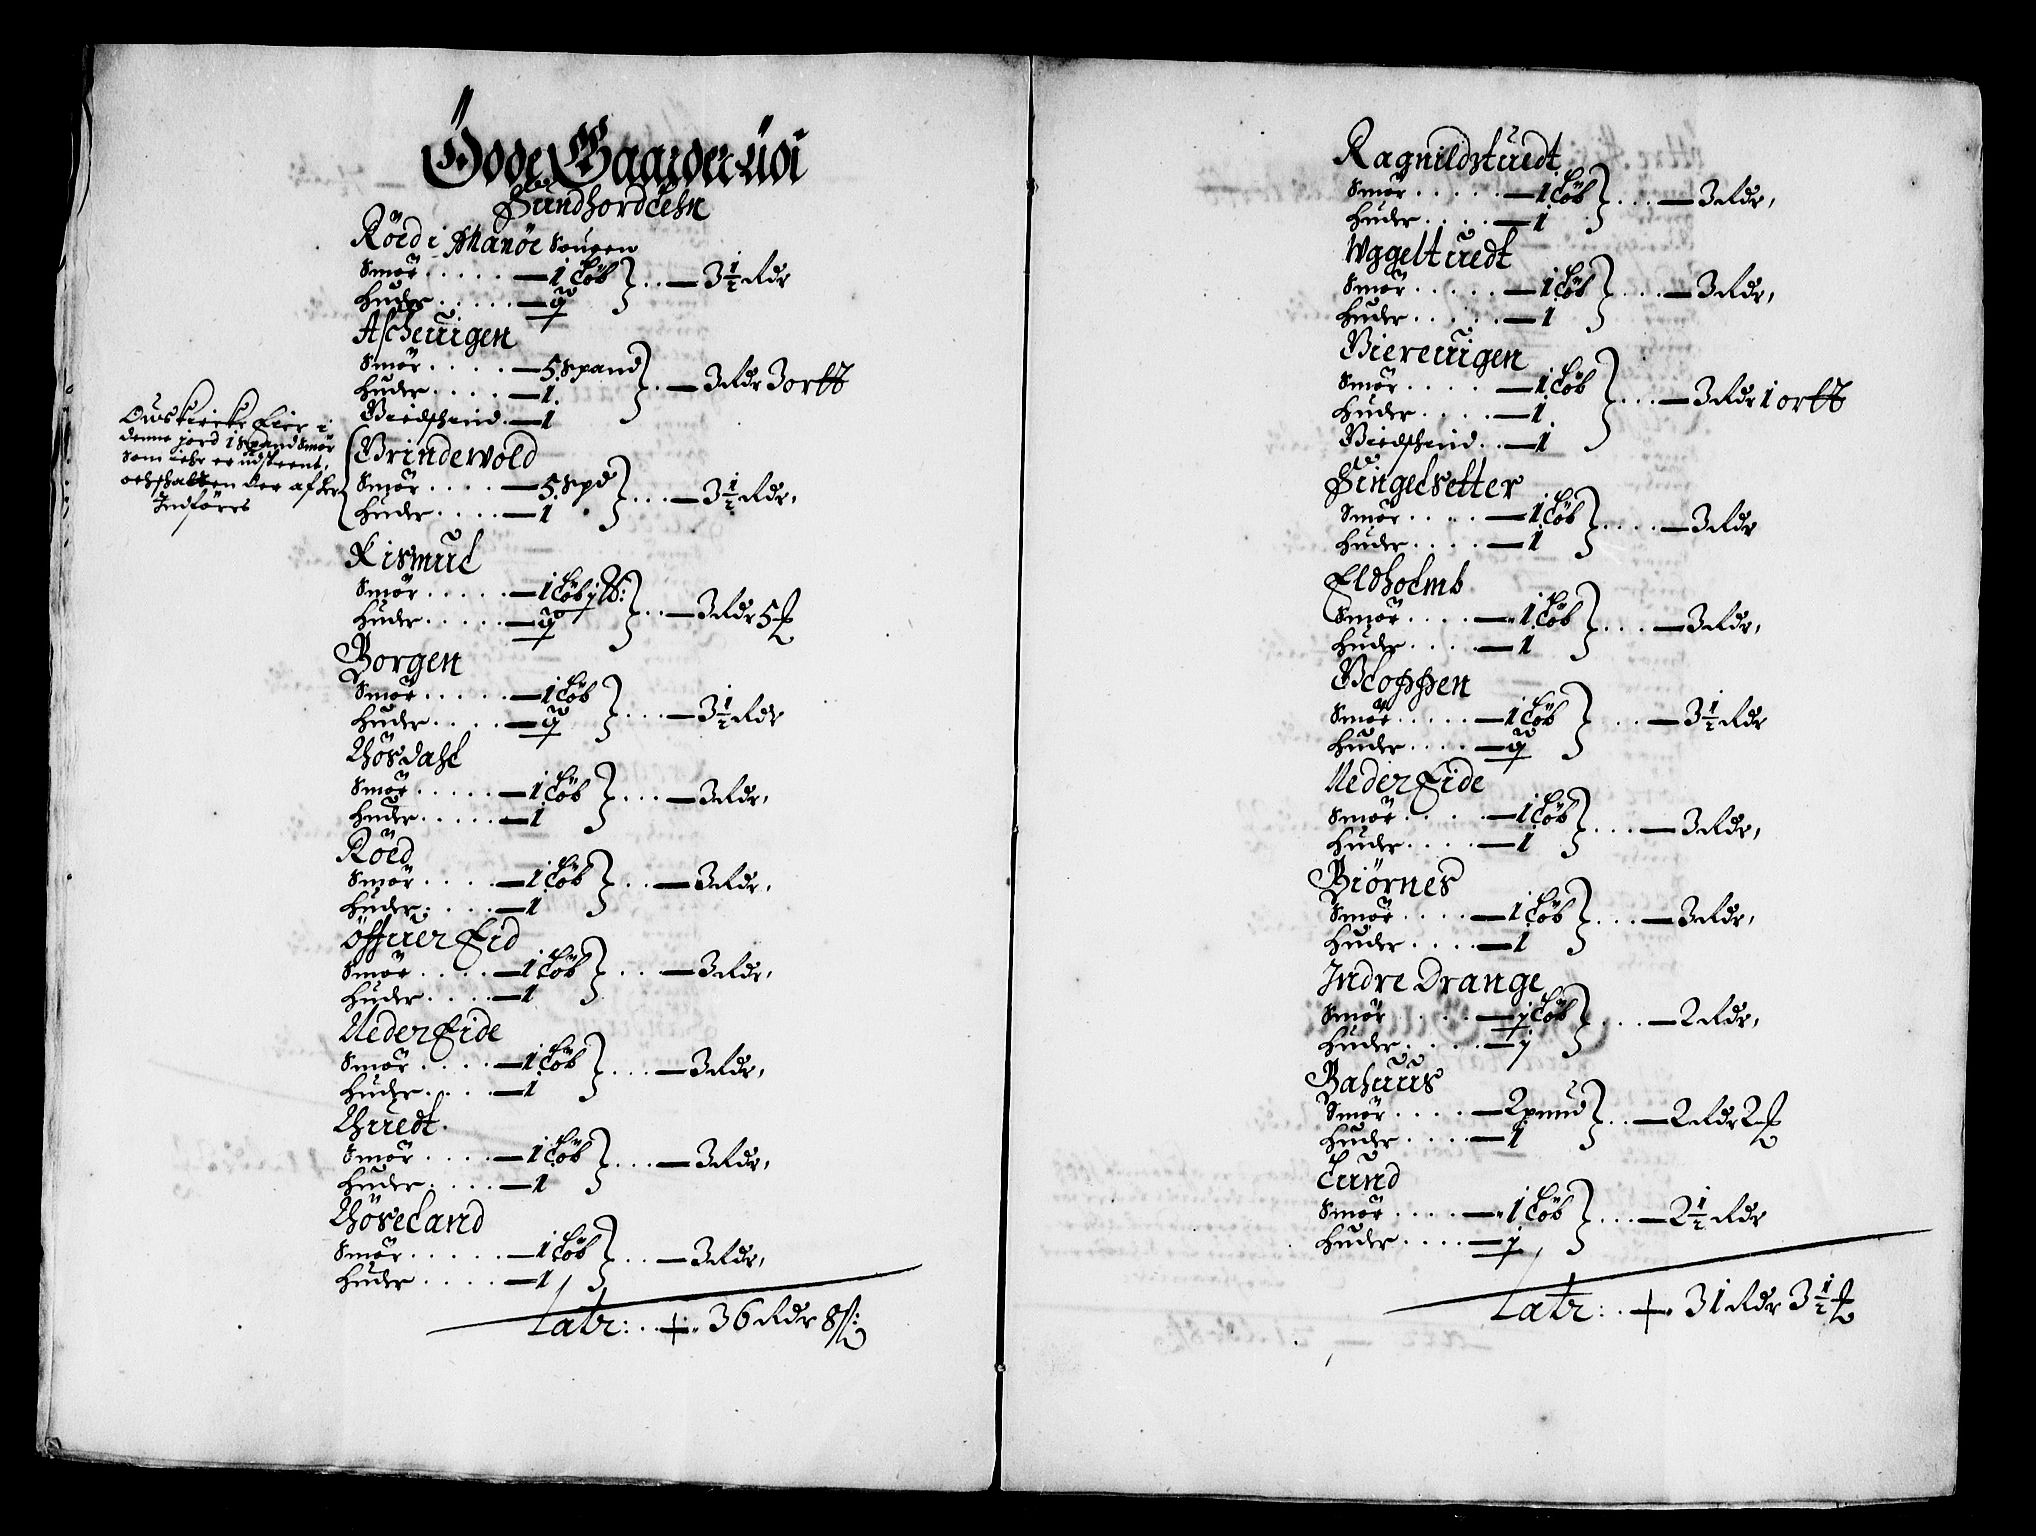 Öde Gaarder udi
Sundhordlehn
Röed i Manöe Sougen
Smör . . . . . — 1 Löb
Huder . . . . . — — 3 1/2 Rdr
Aschevigen
Smör . . . . . — 5 Spand
Huder . . . . — 1. — 3 Rdr 3 ortt
Biedschind . — 1
Ouskircke Eier i
denne jord 1 Spand Smör
som icke er udstrent,
Indföres
Brindevold
Smör . . . . — 5 Spd
Huder . . . . — 1 . . . — 3 1/2 Rdr,
Kismul
Smör . . . . . — 1 Löb
Huder . . . . . — . . — 3 Rdr 5 ß
Borgen
Smör . . . . . — 1 Löb
Huder . . . . — . . . — 3 1/2 Rdr
Thösdahl
Smör . . . . . — 1 Löb
Huder . . . . . — 1 . . . — 3 Rdr,
Röed
Smör . . . . — 1 Löb
Huder . . . . — 1 . . . — 3 Rdr,
Öffuer Eid
Smör . . . . — 1 Löb
Huder . . . . — 1 . . . — 3 Rdr,
Neder Eide
Smör . . . . — 1 Löb
Huder . . . . — 1 . . . — 3 Rdr,
Thuedt
Smör . . . . — 1 Löb
Huder . . . . — 1 . . . — 3 Rdr,
Thöseland
Smör . . . . . — 1 Löb
Huder . . . . — 1 . . . — 3 Rdr,
Latr: . . . 36 Rdr 8 ß:
Ragnildstuedt
Smör . . . . . — 1 Löb
Huder . . . . — 1 . . . — 3 Rdr,
Wggeltuedt
Smör . . . . . . — 1 Löb
Huder . . . . . — 1 . . . — 3 Rdr,
Bierevigen
Smör . . . . . — 1 Löb
Huder . . . . — 1. . . . — 3 Rdr 1 ortt
Biedschind . . — 1
Singelsetter
Smör . . . . — 1 Löb
Huder . . . . — 1 . . . . — 3 Rdr
Eldholmb
Smör . . . . — 1 Löb
Huder . . . . — 1 . . . . — 3 Rdr,
Bloppen
Smör . . . . . — 1 Löb
Huder . . . . — . . . — 3 1/2 Rdr
Neder Eide
Smör . . . . . — 1 Löb
Huder . . . . — 1 . . . — 3 Rdr,
Biörnes
Smör . . . . — 1 Löb
Huder . . . . — 1 . . . — 3 Rdr,
Indre Drange
Smör . . . . — Löb
Huder . . . . . — j . . . — 2 Rdr,
Bahuus
Smör . . . . — 2 pund
Huder . . . . — 1 . . — 2 Rdr 2 ß
Lund
Smör . . . . — 1 Löb
Huder . . . . — . . . — 2 1/2 Rdr
Latr: . . 31 Rdr 3 1/2 ß